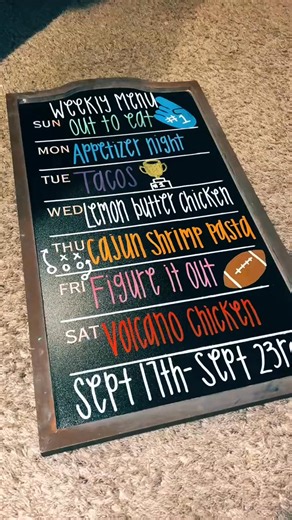 Weekly Menu
SUN out to eat #1
MON Appetizer night
TUE Tacos
WED Lemon butter chicken
THU Cajun Shrimp Pasta
FRI Figure it out
SAT Volcano Chicken
Sept 17th - Sept 23r